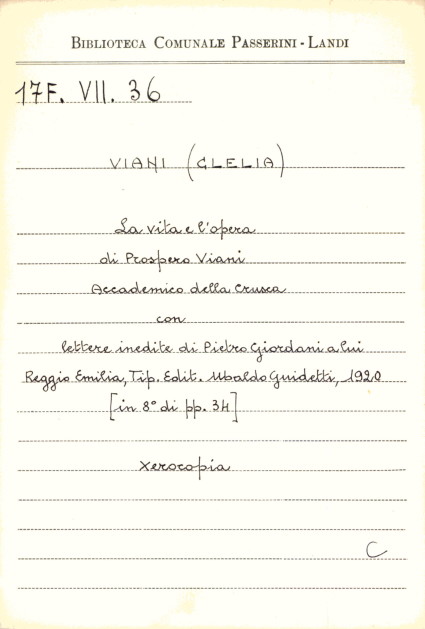 BIBLIOTECA COMUNALE PASSERINI - LANDI
17F. VII. 36
VIANI (CLELIA)
La vita e l'opera
di Prospero Viani
Accademico della Crusca
con
lettere inedite di Pietro Giordani a lui
Reggio Emilia, Tip. Edit. Ubaldo Guidetti, 1920
[in 8° di pp. 34]
xerocopia
C